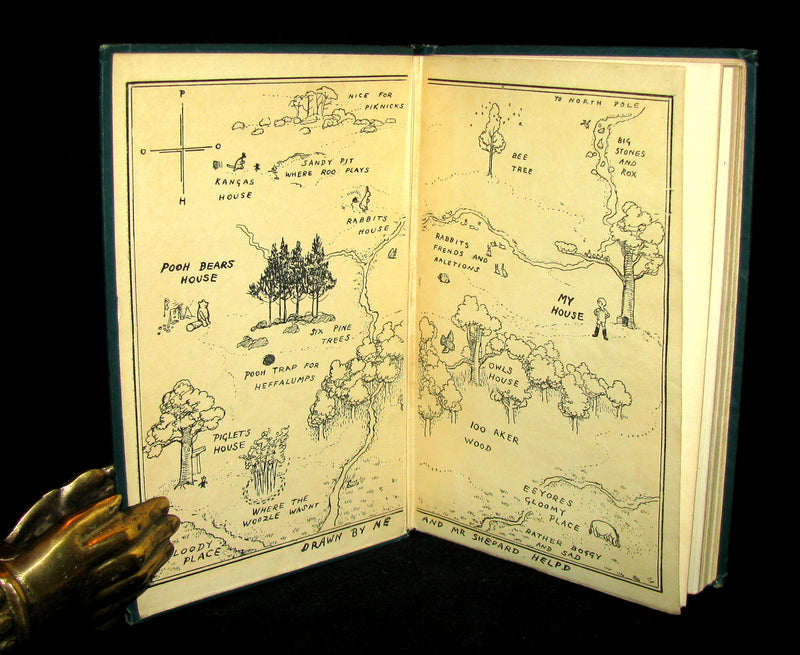 P
O
O
H
NICE FOR
PIKNICKS
KANGAS
HOUSE
SANDY PIT
WHERE ROO PLAYS
RABBITS
HOUSE
POOH BEARS
HOUSE
SIX PINE
TREES
POOH TRAP FOR
HEFFALUMPS
PIGLETS
HOUSE
WHERE THE
WOOZLE WASNT
LOODY
PLACE
DRAWN BY ME
TO NORTH POLE
BEE
TREE
BIG
STONES
AND
ROX
RABBITS
FRENDS AND
RALETIONS
MY
HOUSE
OWLS
HOUSE
100 AKER
WOOD
EEYORES
GLOOMY
PLACE
RATHER BOGGY
AND SAD
AND MR SHEPARD HELPD